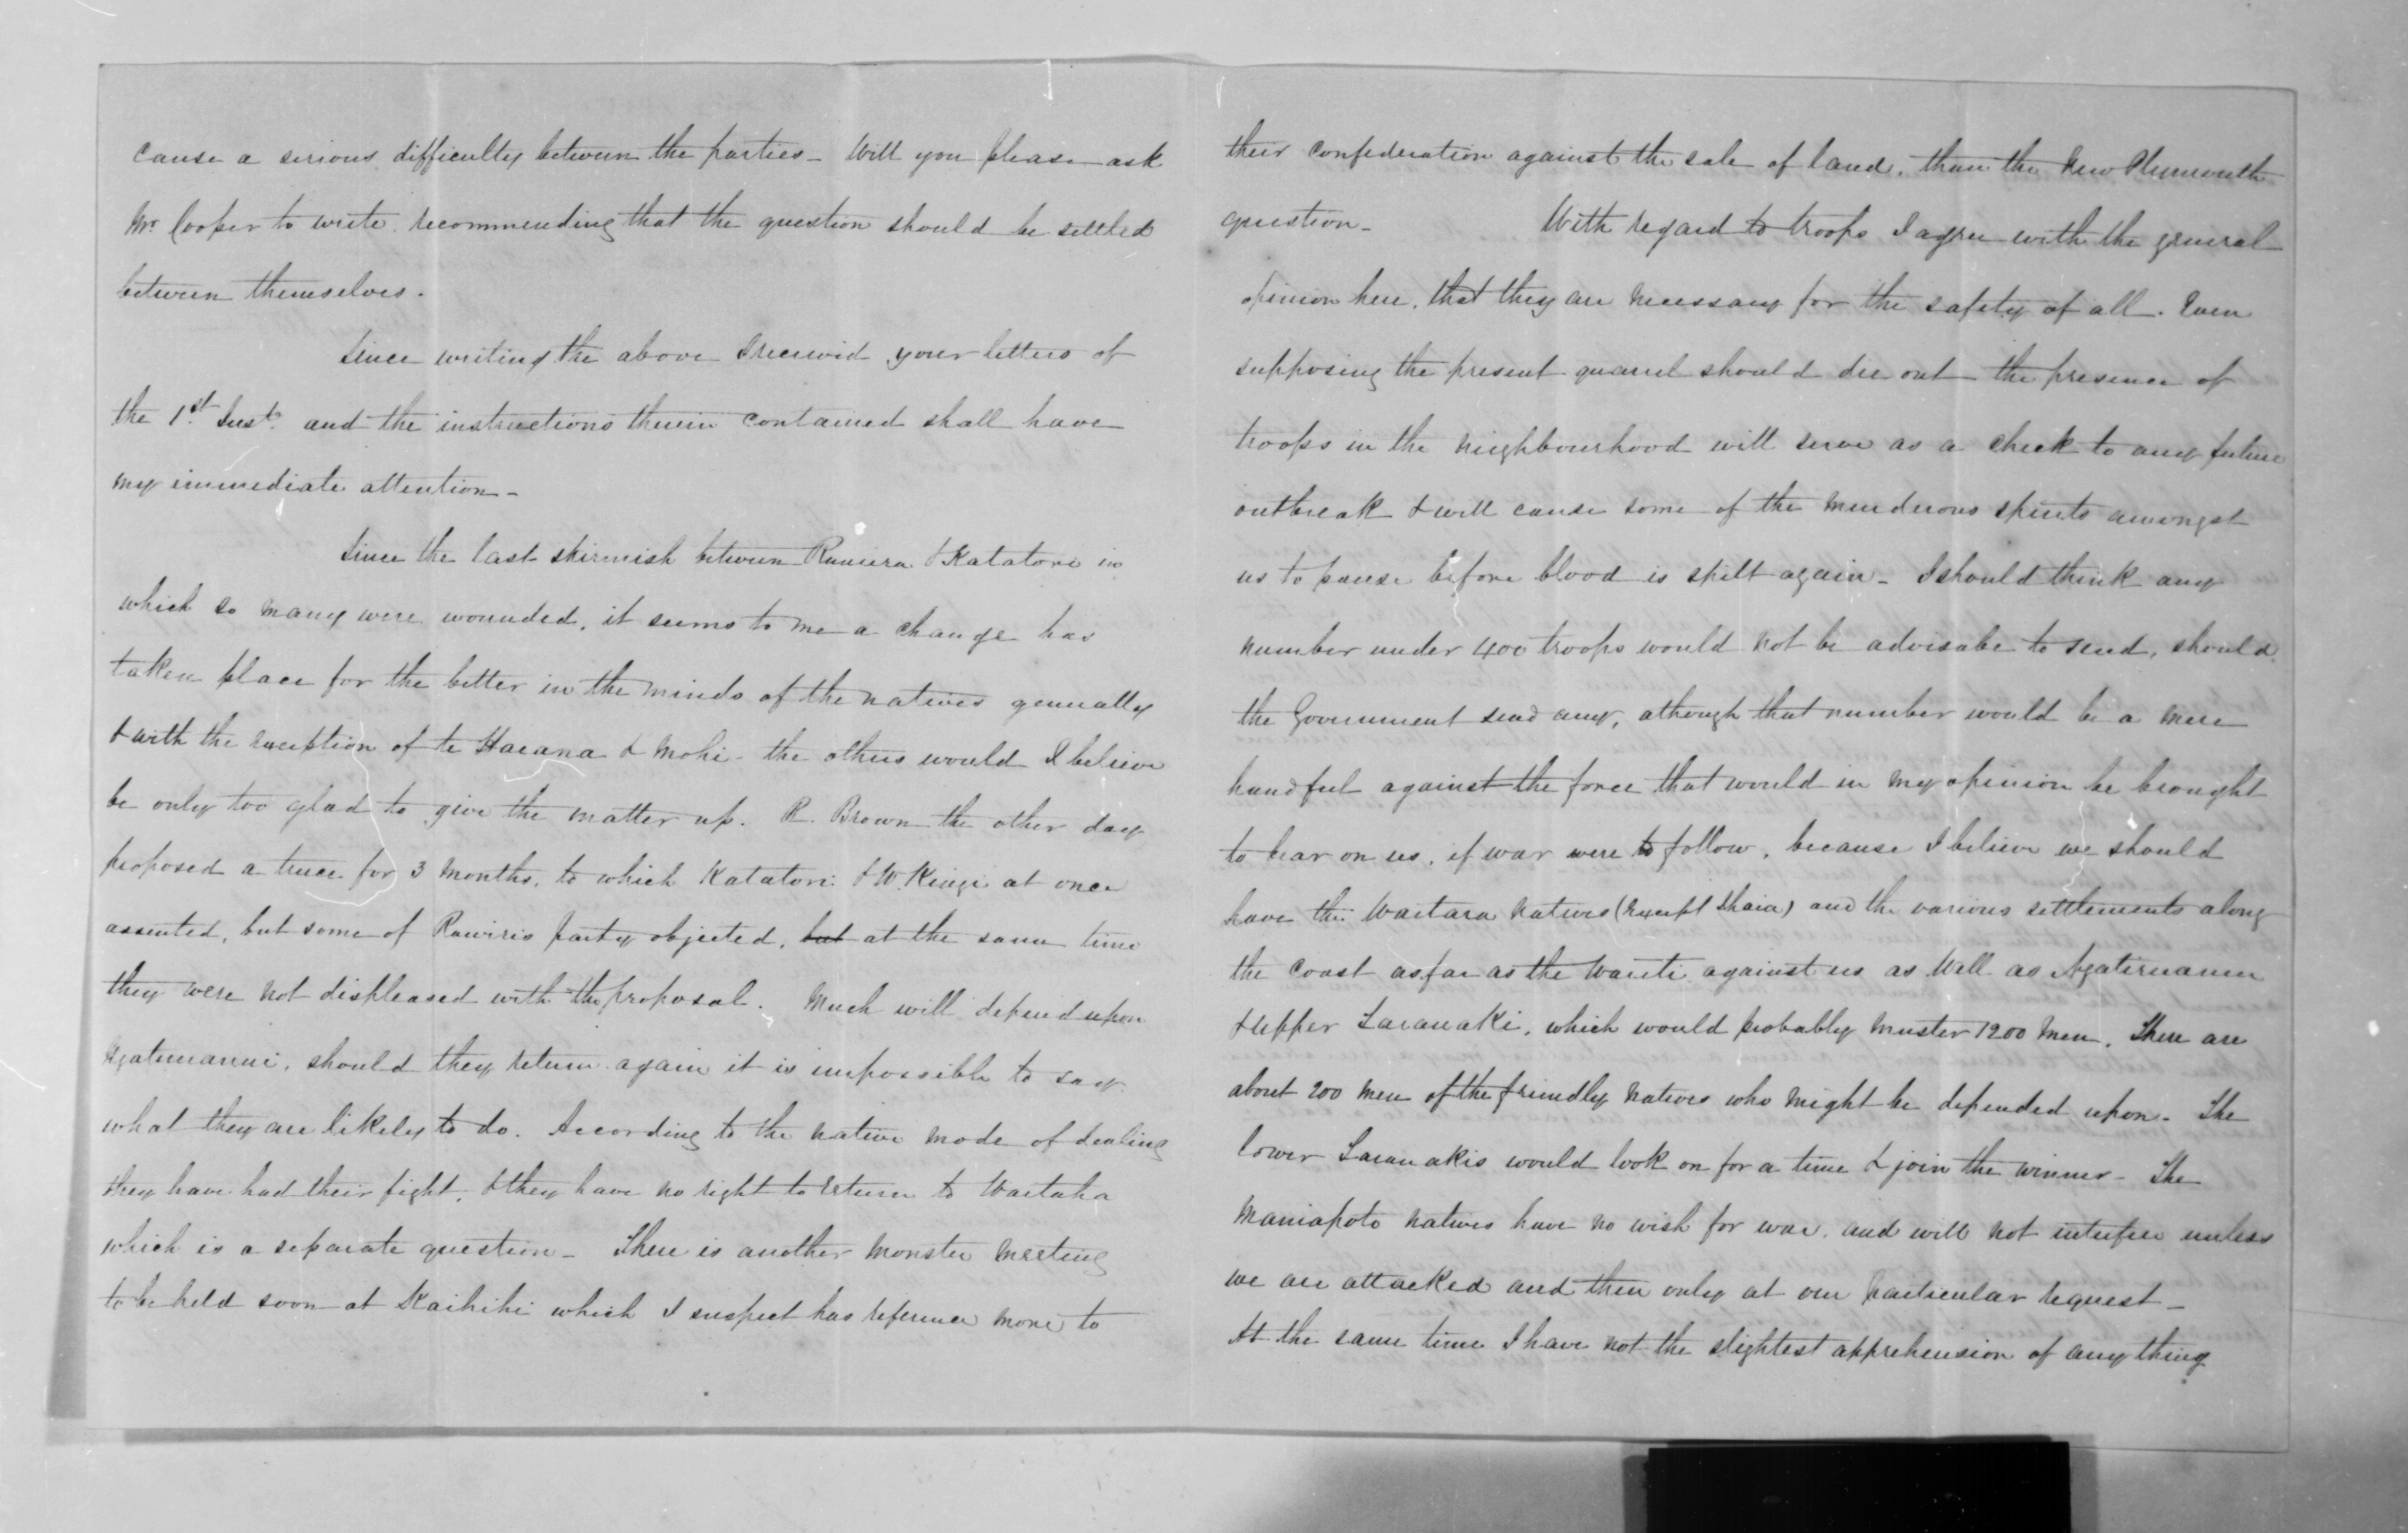 cause a serious difficulty between the parties - Will you please ask
Mr. Cooper to write recommending that the question should be settled
between themselves.
Since writing the above I received your letters of
the 1st. Inst. and the instructions therein contained shall have
my immediate attention -
Since the last skirmish between Rawiera & Katatore in
which so many were wounded, it seems to me a change has
taken place for the better in the minds of the natives generally
& with the exception of te Haeana & Mohi - the others would I believe
be only too glad to give the matter up. R. Brown the other day
proposed a truce for 3 months, to which Katatori & W. Kingi at once
assented, but some of Rawiris party objected, but at the same time
they were not displeased with the proposal. Much will depend upon
Ngatiruanui, should they return again it is impossible to say
what they are likely to do. According to the native mode of dealing
they have had their fight, & they have no right to return to Waitaha
which is a separate question - There is another monster meeting
to be held soon at Kaihihi which I suspect has reference more to
their confederation against the sale of land, than the New Plymouth
question - With regard to troops I agree with the general
opinion here, that they are necessary for the safety of all. Even
supposing the present quarrel should die out the presence of
troops in the neighbourhood will serve as a check to any future
outbreak & will cause some of the murderous spirits amongst
us to pause before blood is spilt again - I should think any
number under 400 troops would not be advisabe to send, should
the Government send any, although that number would be a mere
handful against the force that would in my opinion be brought
to bear on us, if war were to follow, because I believe we should
have the Waitara natives (except Ihaia) and the various settlements along
the coast as far as the against us as well as Ngatiruanui
& upper Taranaki, which would probably muster 1200 men. There are
about 200 men of the friendly natives who might be depended upon - The
lower Taranakis would look on for a time & join the winner - The
Maniapoto natives have no wish for war, and will not interfere unless
we are attacked and then only at our particular request -
At the same time I have not the slightest apprehension of any thing